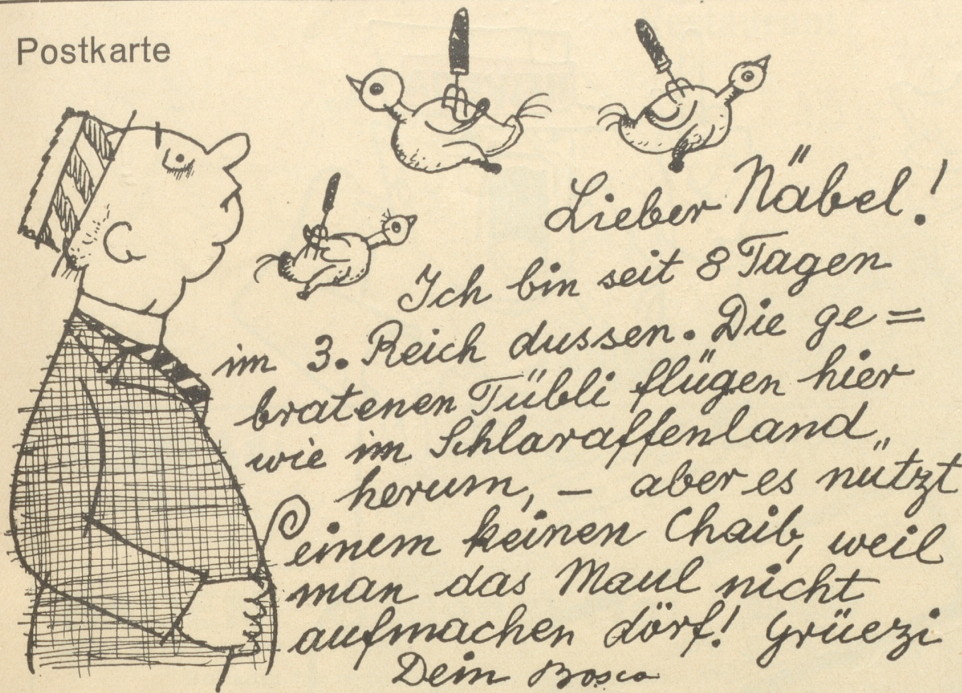 Postkarte
Lieber Näbel!
Ich bin seit 8 Tagen
im 3. Reich dussen. Die ge=
bratenen Tübli flügen hier
wie im Schlaraffenland
herum, — aber es nützt
einem keinen Chaib, weil
man das Maul nicht
aufmachen dörf! Grüezi
Dein Bosco